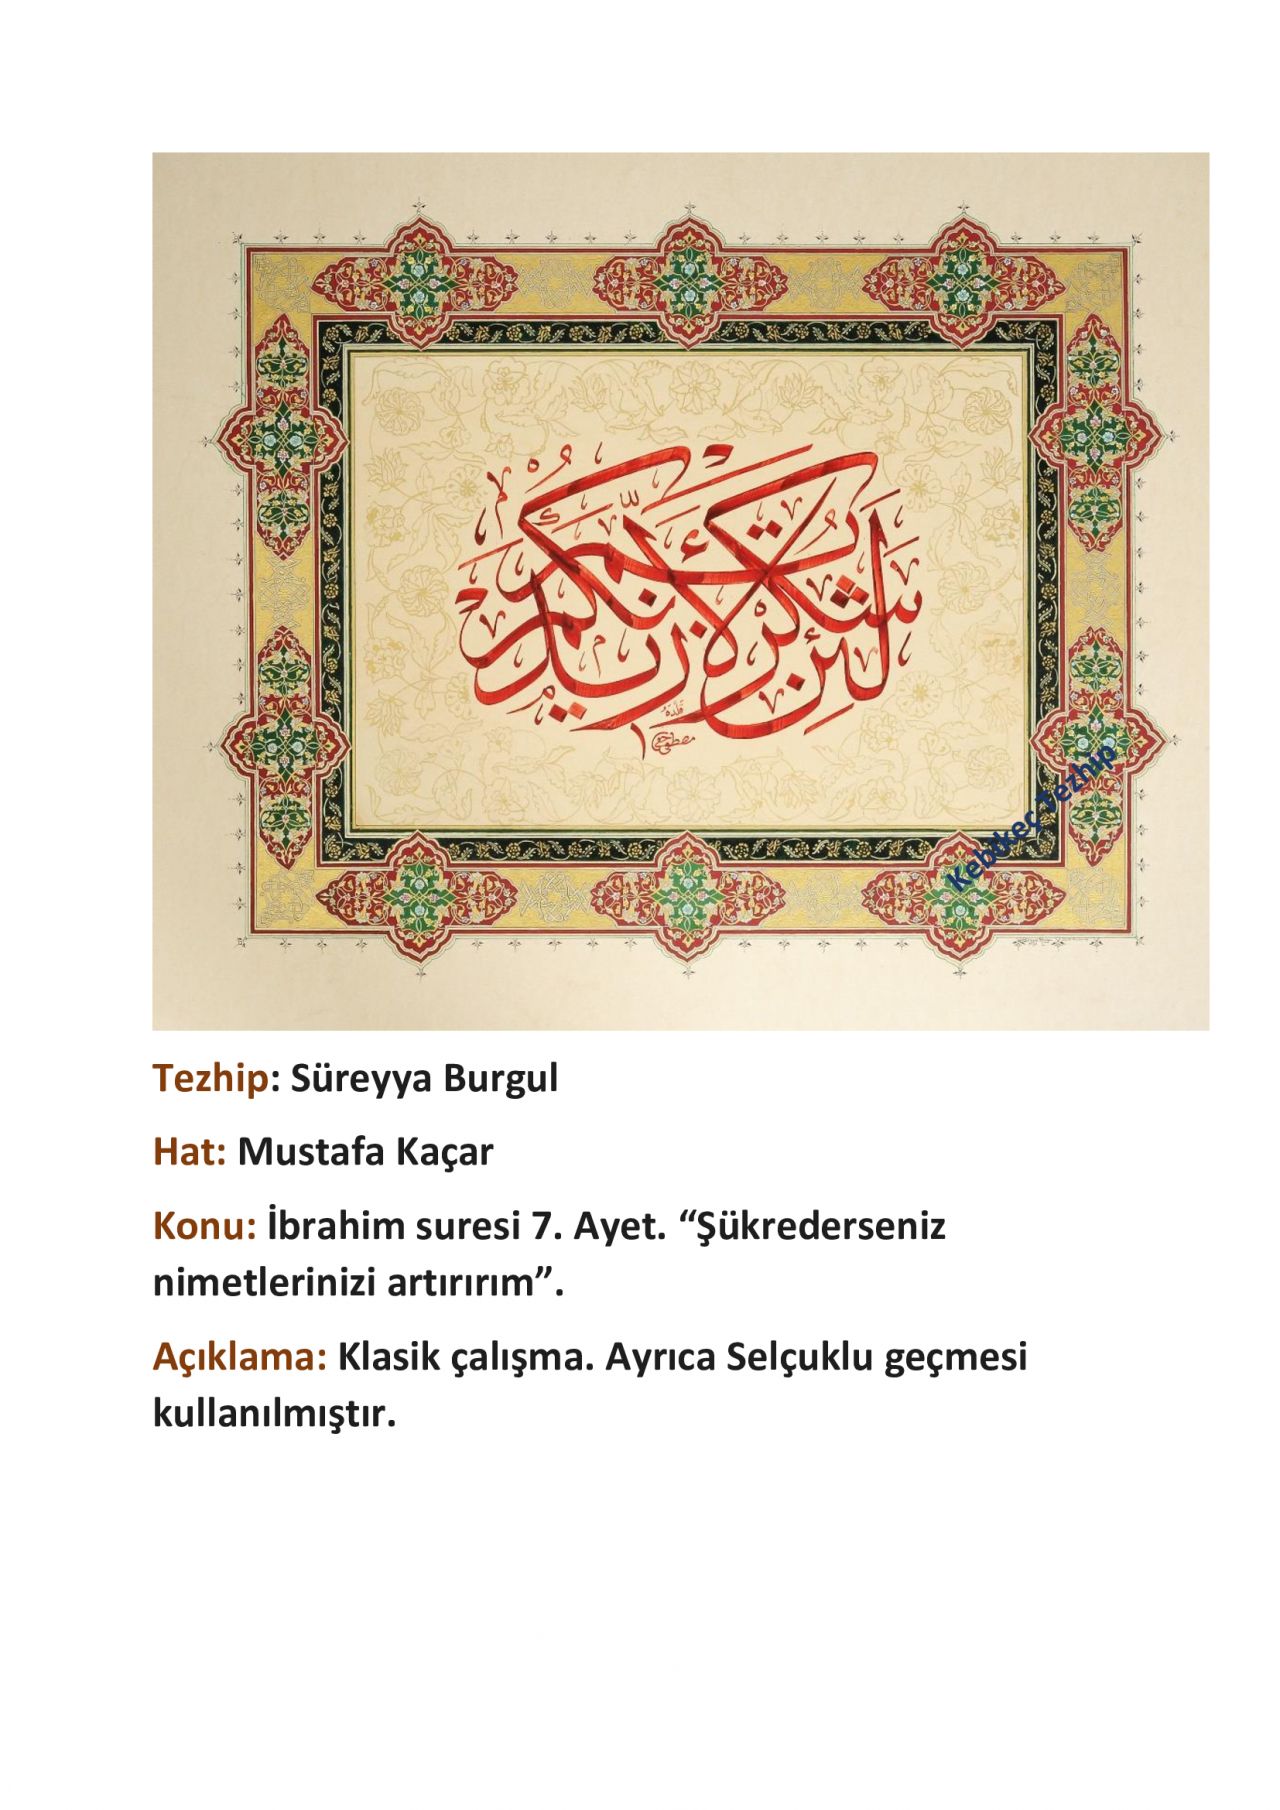 لئن شكرتم لأزيدنكم
Kebikeç Tezhip
Tezhip: Süreyya Burgul
Hat: Mustafa Kaçar
Konu: İbrahim suresi 7. Ayet. “Şükrederseniz
nimetlerinizi artırırım”.
Açıklama: Klasik çalışma. Ayrıca Selçuklu geçmesi
kullanılmıştır.